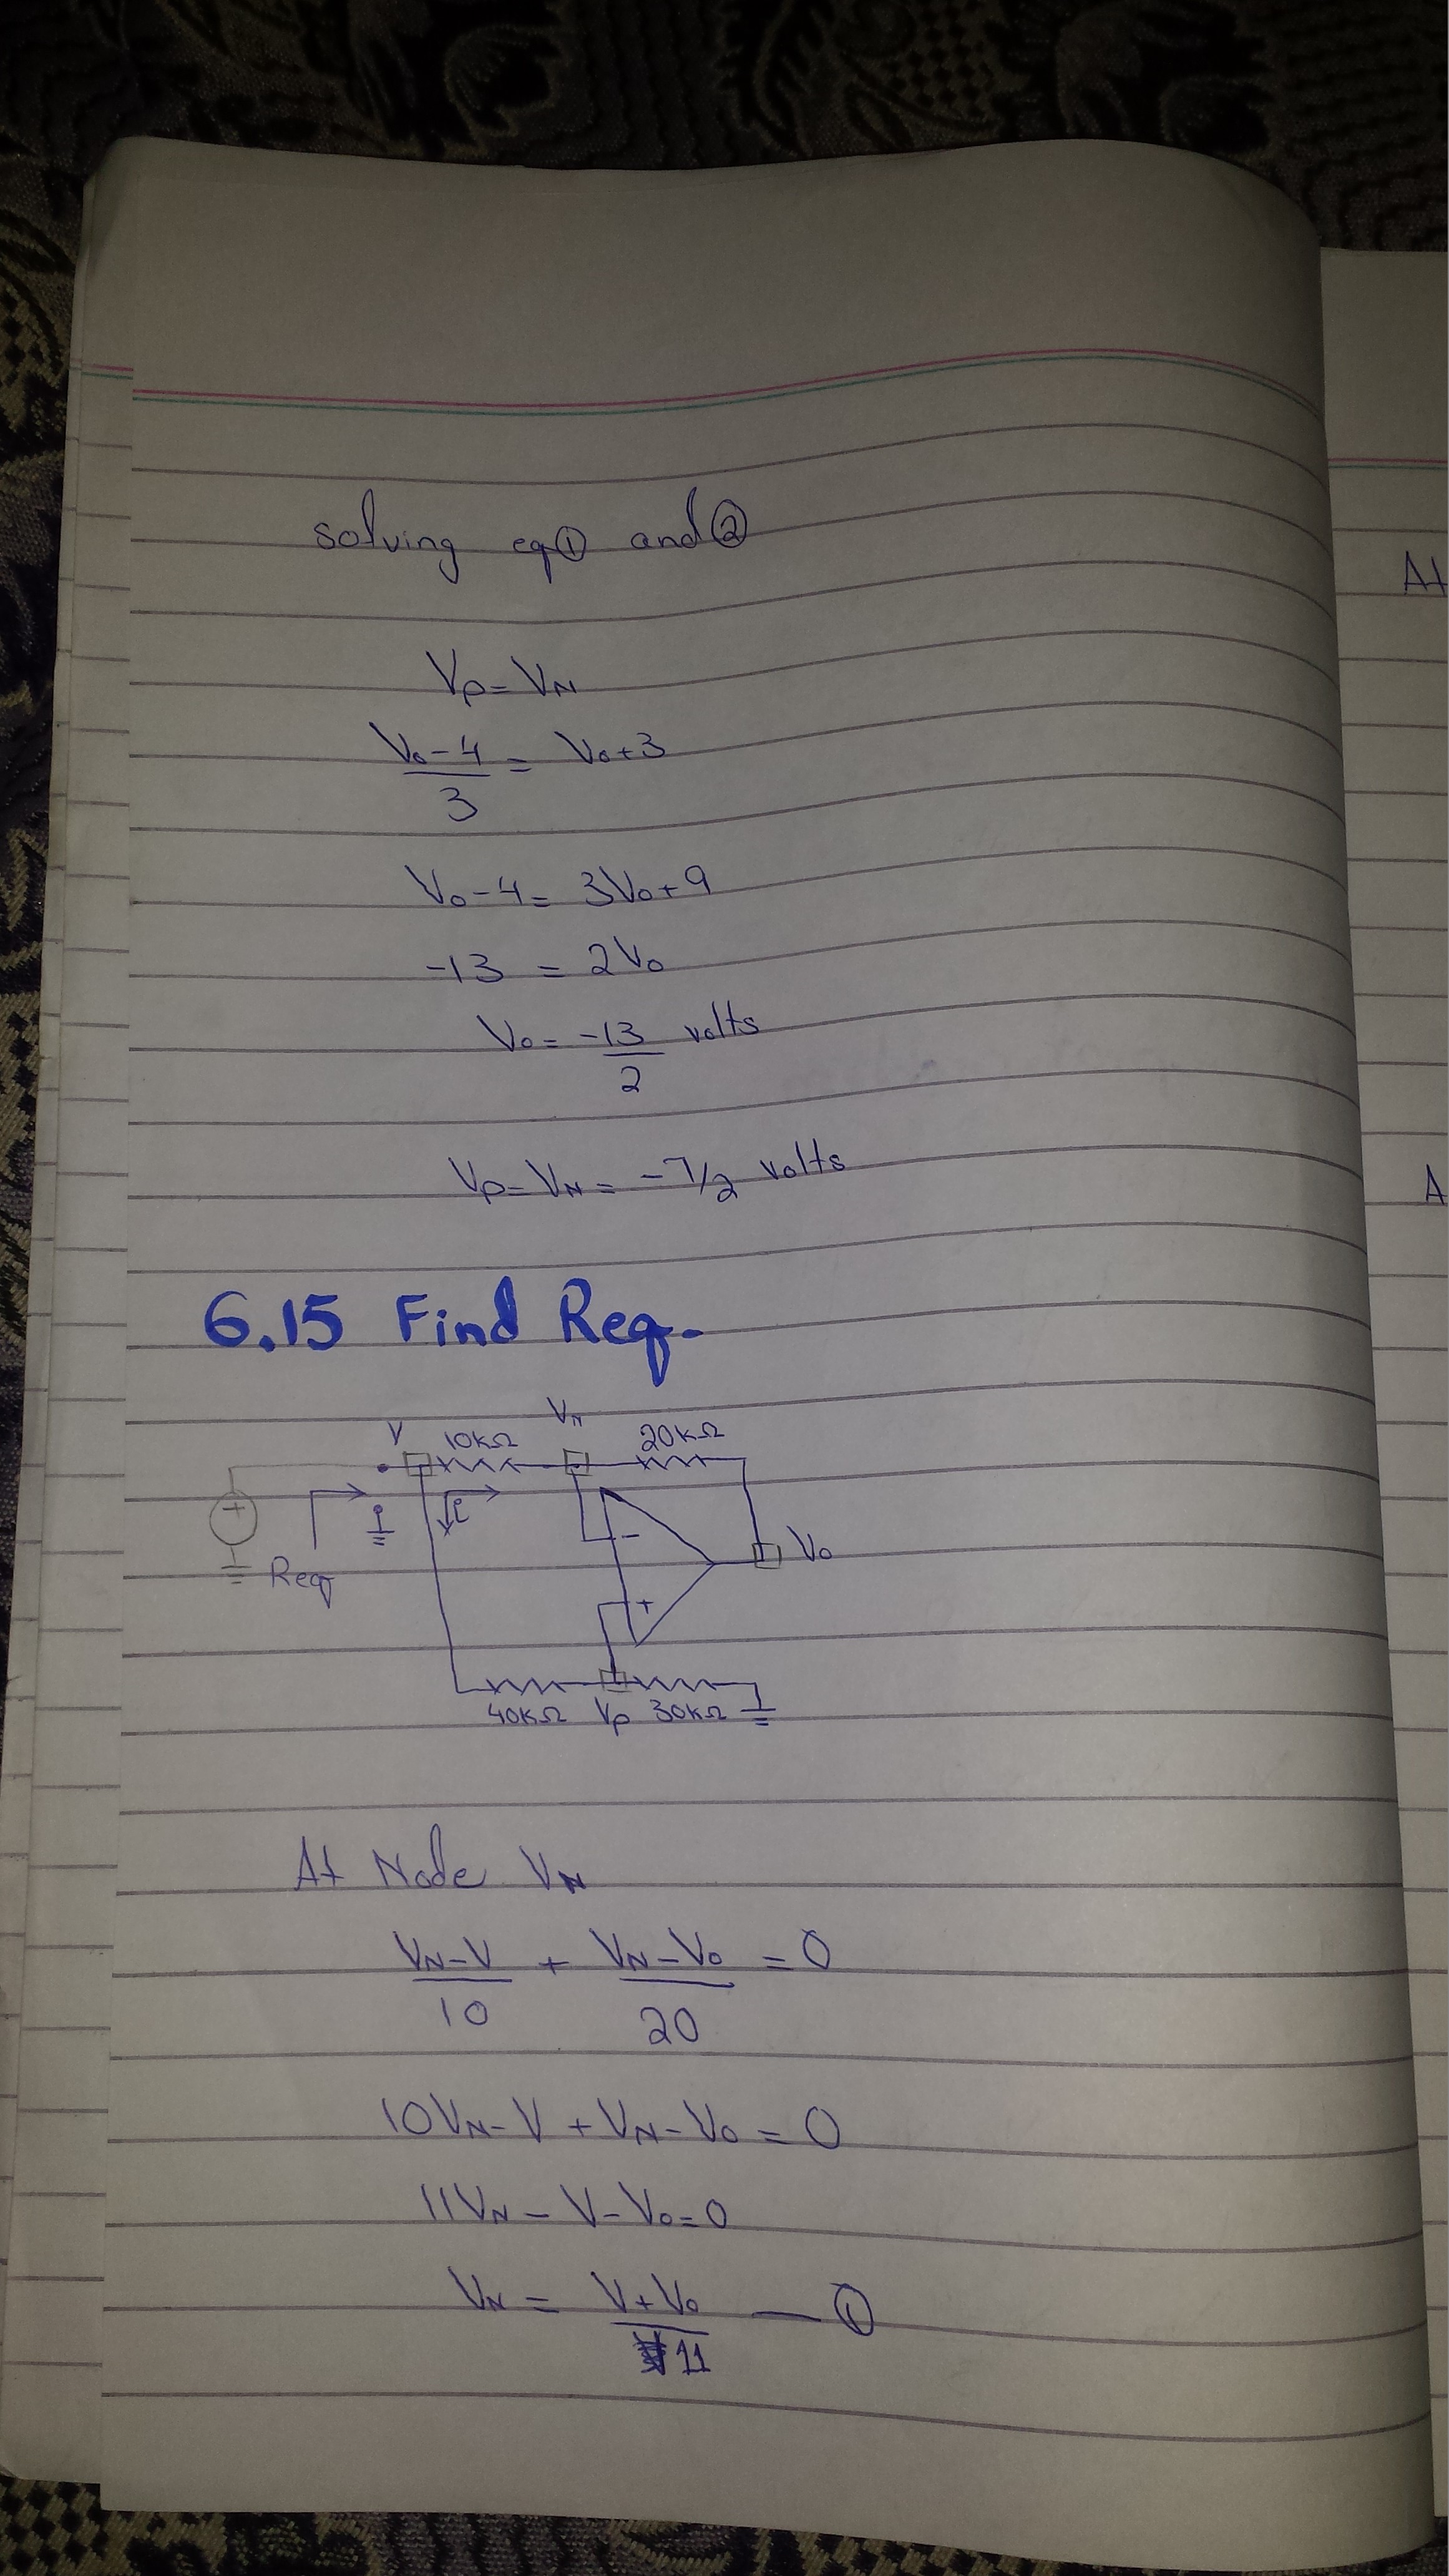 solving eq① and ②
Vp = VN
Vo - 4 / 3 = Vo + 3
Vo - 4 = 3Vo + 9
-13 = 2Vo
Vo = -13 / 2 volts
Vp = VN = -7/2 volts
6.15 Find Req.
V 10kΩ Vn 20kΩ
+
i
-
Vo
Req
+
40kΩ Vp 30kΩ
At Node VN
VN - V / 10 + VN - Vo / 20 = 0
10VN - V + VN - Vo = 0
11VN - V - Vo = 0
VN = V + Vo / 11 — ①
At
A